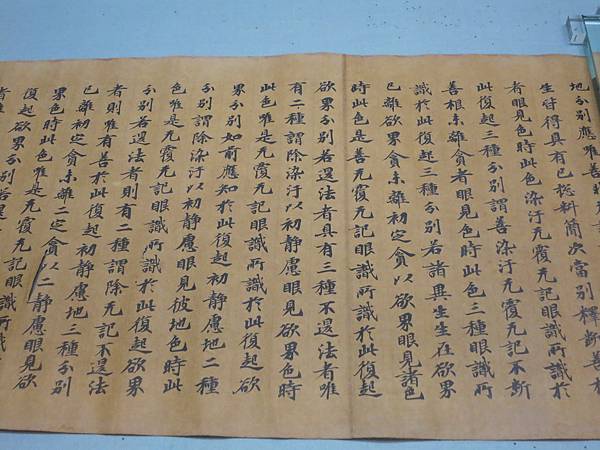 地分別應唯善
生容得具有已惣料簡次當別釋斷善根
者眼見色時此色染汙无覆无記眼識所識於
此復起三種分別謂善染汙无覆无記不斷
善根未離貪者眼見色時此色三種眼識所
識於此復起三種分別若諸異生生在欲界
已離欲界貪未離初定貪以欲界眼見諸色
時此色是善无覆无記眼識所識於此復起
欲界分別若退法者具有三種不退法者唯
有二種謂除染汙以初靜慮眼見欲界色時
此色唯是无覆无記眼識所識於此復起欲
界分別如前應知於此復起初靜慮地二種
分別謂除染汙以初靜慮眼見彼地色時此
色唯是无覆无記眼識所識於此復起欲界
分別若退法者則有二種謂除无記不退法
者則唯有善於此復起初靜慮地三種分別
已離初定貪未離二定貪以二靜慮眼見欲
界色時此色唯是无覆无記眼識所識
復起欲界分別若退